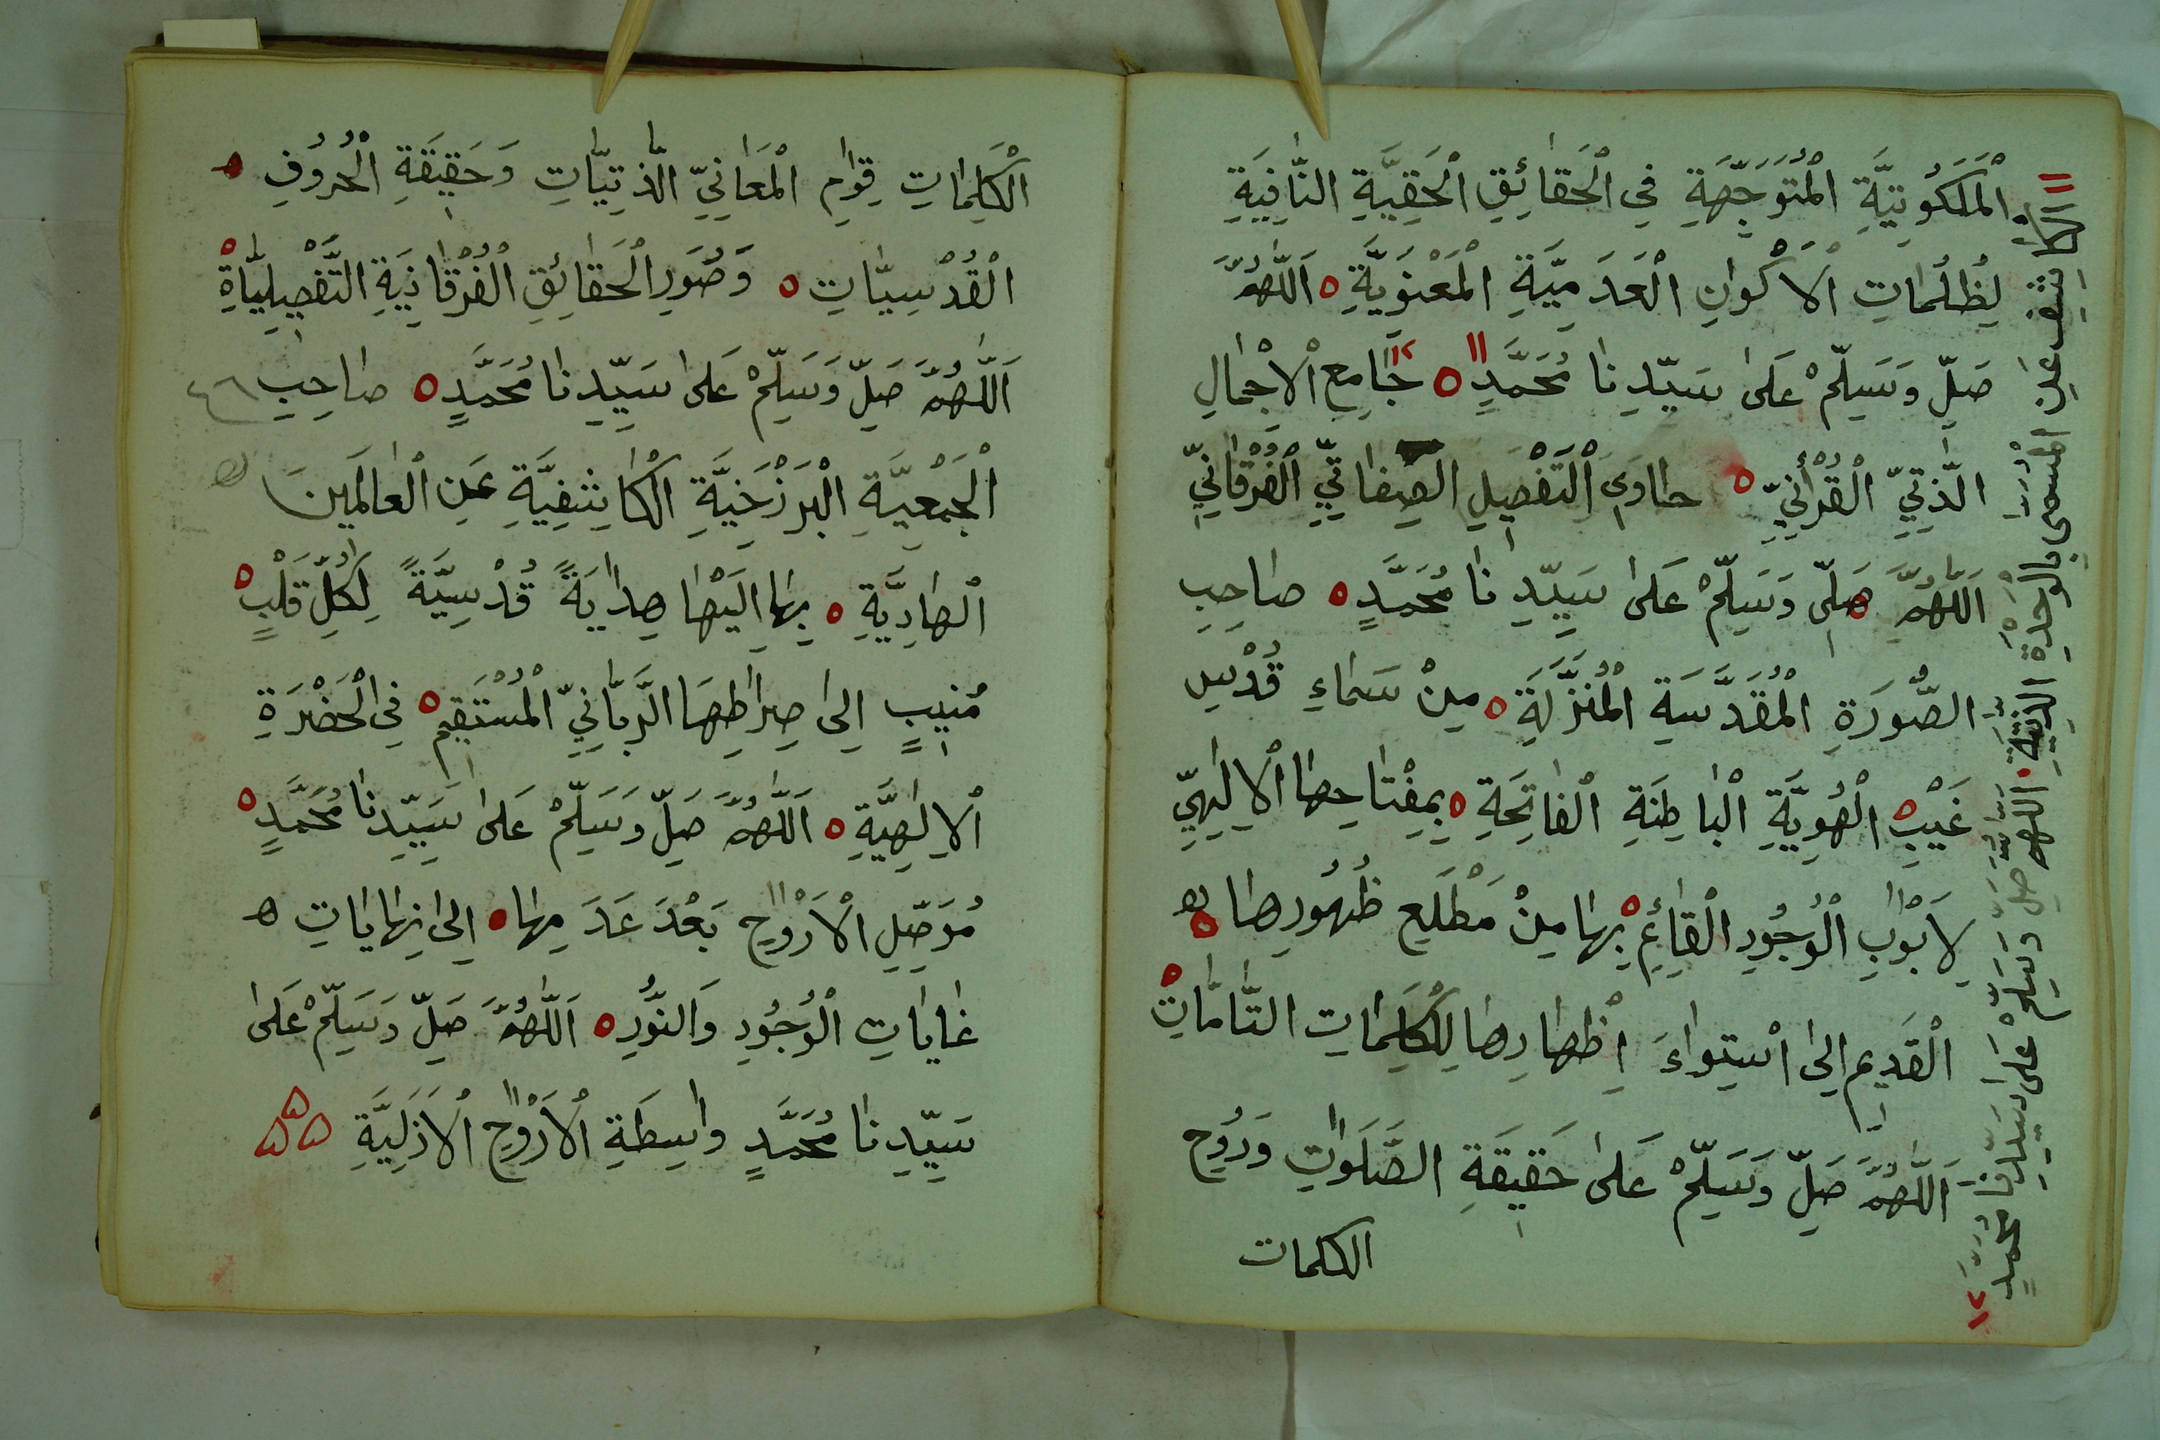 اَلْمَلَكُوتِيَّةِ الْمُتَوَجِّهَةِ فِي الْحَقَائِقِ الْحَقِيَّةِ النَّافِيَةِ
لِظُلُمَاتِ الْاَكْوَانِ الْعَدَمِيَّةِ الْمَعْنَوِيَّةِ ه اَللّٰهُمَّ
صَلِّ وَسَلِّمْ عَلَى سَيِّدِنَا مُحَمَّدٍ ١١ ه ١٢ جَامِعِ الْاِجْمَالِ
الذَّتِيِّ الْقُرْأٰنِيِّ ه حَاوِيَ التَّفْصِيلِ الصِّفَاتِيِّ الْفُرْقَانِيِّ
اَللّٰهُمَّ صَلِّى وَسَلِّمْ عَلَى سَيِّدِنَا مُحَمَّدٍ ه صَاحِبِ
الصُّورَةِ الْمُقَدَّسَةِ الْمُنَزَّلَةِ ه مِنْ سَمَاءِ قُدْسِ
غَيْبِ ه الْهُوِيَّةِ الْبَاطِنَةِ الْفَاتِحَةِ ه بِمِفْتَاحِهَا الْاِلٰهِيِّ
لِاَبْوَابِ الْوُجُودِ الْقَائِمِ ه بِهَا مِنْ مَطْلَعِ ظُهُورِهَا ه
الْقَدِيمِ اِلَى اسْتِوَاءَ اِظْهَارِهَا لِلْكَلِمَاتِ التَّامَّاتِ ه
اَللّٰهُمَّ صَلِّ وَسَلِّمْ عَلَى حَقِيقَةِ الصَّلَوٰاتِ وَرُوحِ
الكلمات
١١ الكَاشِفِ عَنِ الْمُسَمَّى بِالْوَحْدَةِ الذَّتِيَّةِ ه اَللّٰهُمَّ صَلِّ وَسَلِّمْ عَلَى سَيِّدِنَا مُحَمَّدٍ ١٢
الْكَلِمَاتِ قِوَامِ الْمَعَانِيِّ الذَّتِيَّاتِ وَحَقِيقَةِ الْحُرُوفِ ه
الْقُدْسِيَّاتِ ه وَصُوَرِ الْحَقَائِقِ الْفُرْقَانِيَةِ التَّفْصِيلِيَّاةِ ه
اَللّٰهُمَّ صَلِّ وَسَلِّمْ عَلَى سَيِّدِنَا مُحَمَّدٍ ه صَاحِبِ
الْجَمْعِيَّةِ الْبَرْزَخِيَّةِ الْكَاشِفِيَّةِ عَنِ الْعَالَمَينَ
الْهَادِيَّةِ ه بِهَا اِلَيْهَا هِدَايَةً قُدْسِيَّةً لِكُلِّ قَلْبٍ ه
مُنِيبٍ اِلَى صِرَاطِهَا الرَّبَّانِيِّ الْمُسْتَقِيمِ ه فِي الْحَضْرَةِ
الْاِلٰهِيَّةِ ه اَللّٰهُمَّ صَلِّ وَسَلِّمْ عَلَى سَيِّدِنَا مُحَمَّدٍ ه
مُوَصِّلِ الْاَرْوَاحِ بَعْدَ عَدَمِهَا ه اِلَى نِهَايَاتِ ه
غَايَاتِ الْوُجُودِ وَالنُّورِ ه اَللّٰهُمَّ صَلِّ وَسَلِّمْ عَلَى
سَيِّدِنَا مُحَمَّدٍ وَاسِطَةِ الْاَرْوَاحِ الْاَزَلِيَّةِ ه ه ه